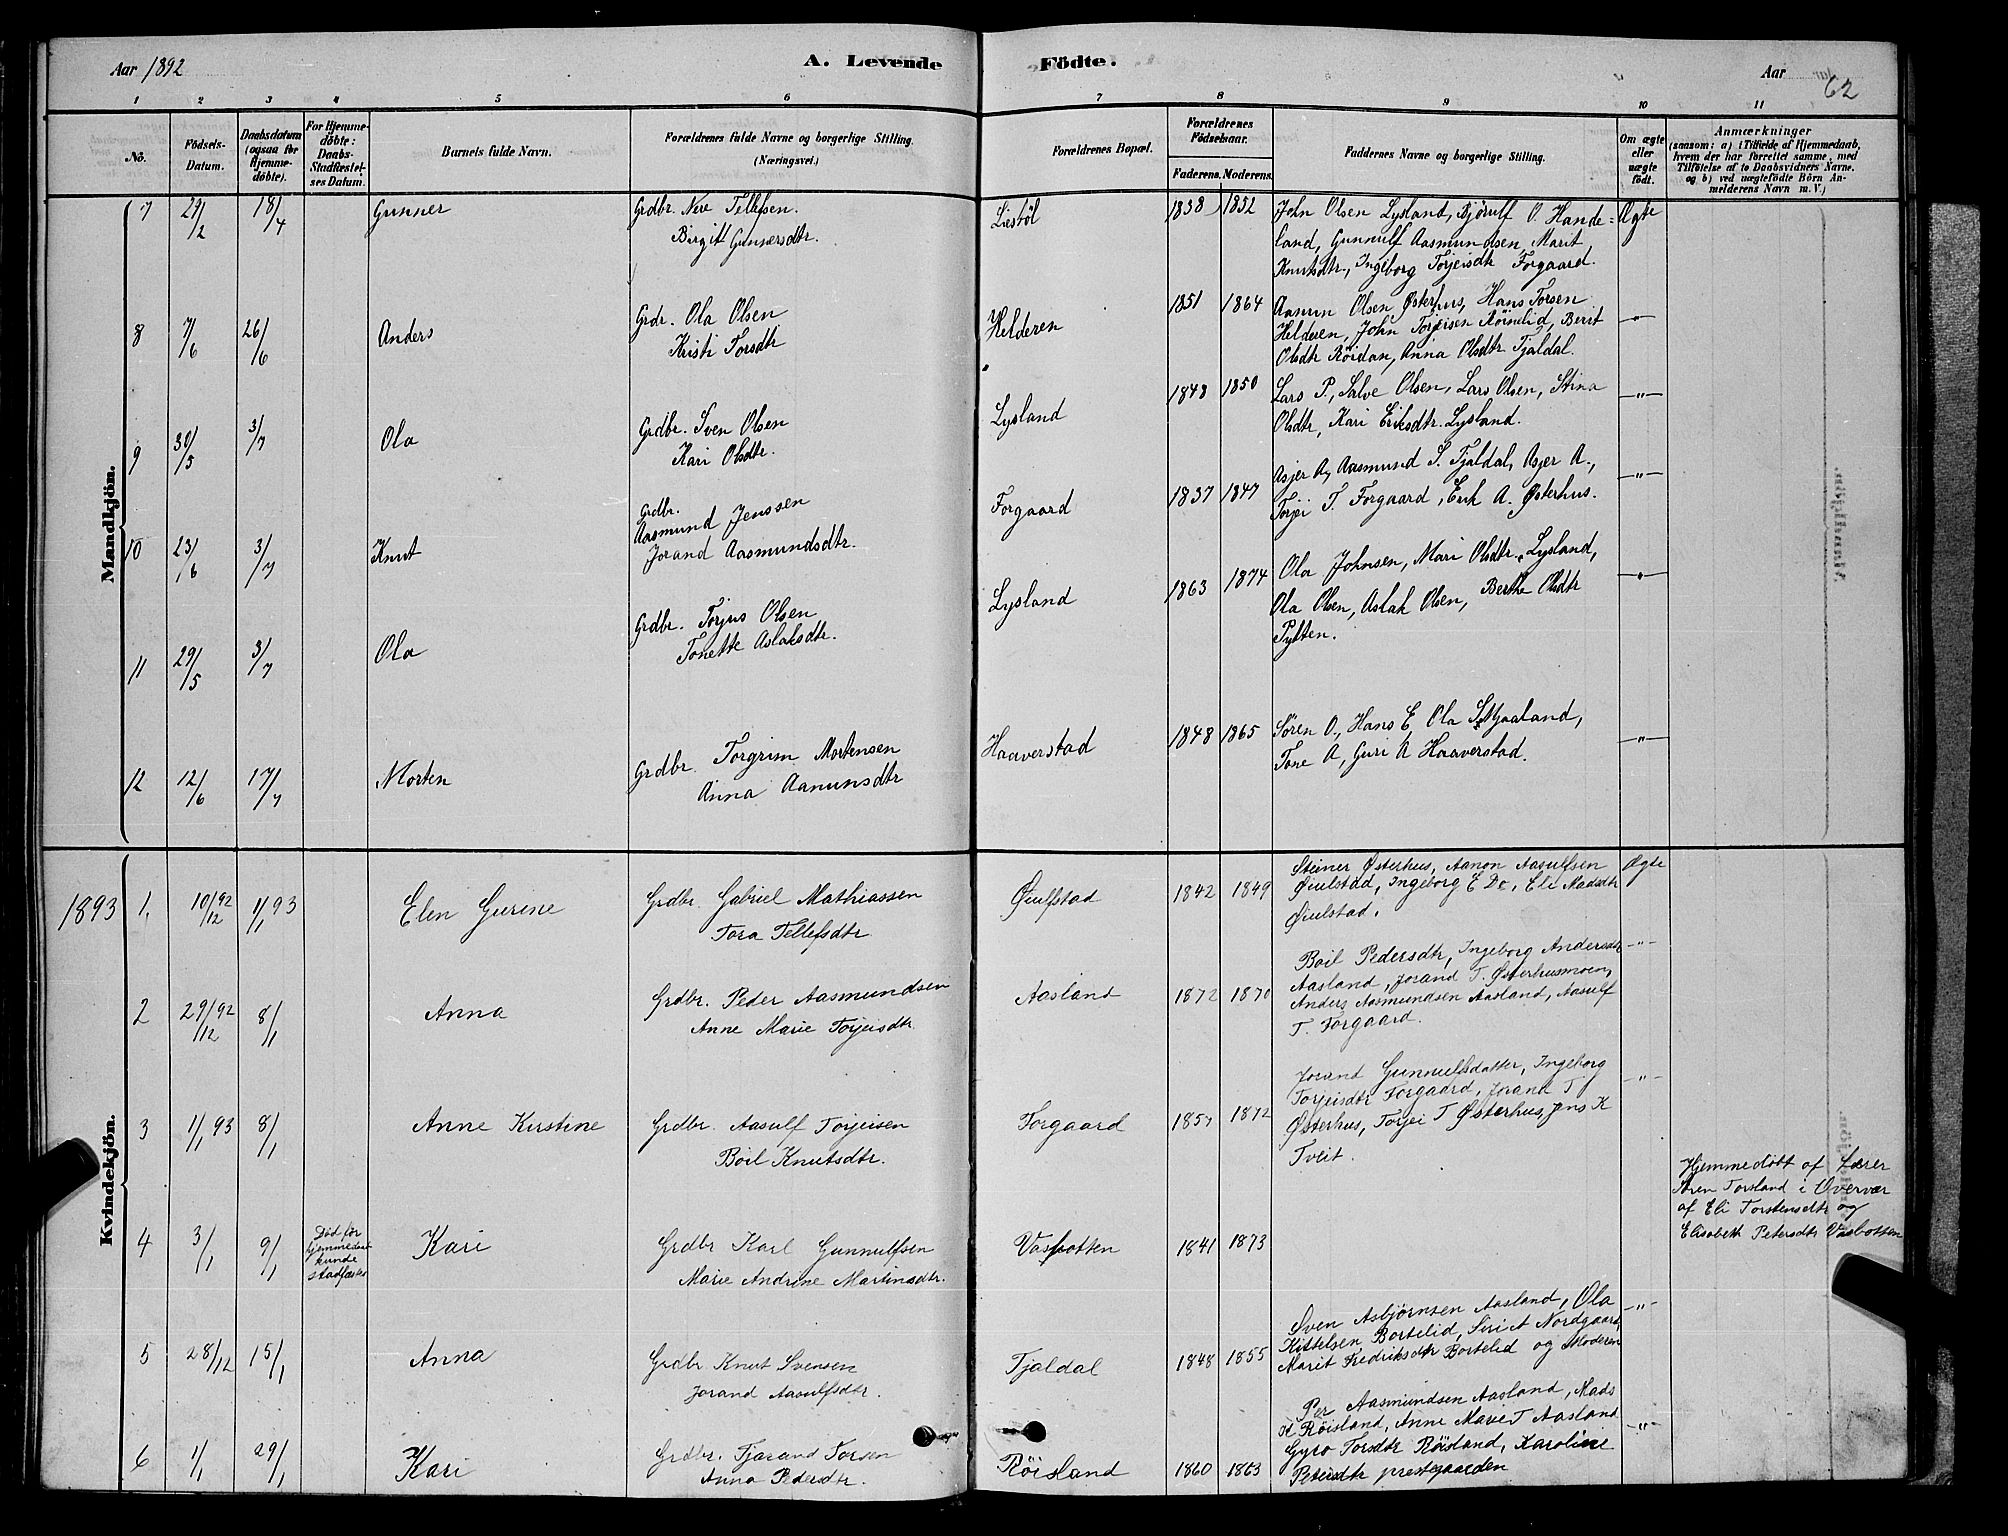 Aar 1892
A. Levende Födte.
Aar
62
1 2 3 4 5 6 7 8 9 10 11
No.
Födsels-Datum.
Daabsdatum (ogsaa for Hjemme-döbte).
For Hjemme-döbte: Daabs-Stadfæstel-ses Datum.
Barnets fulde Navn.
Forældrenes fulde Navne og borgerlige Stilling. (Næringsvei.)
Forældrenes Bopæl.
Forældrenes Födselsaar.
Faderens. Moderens.
Faddernes Navne og borgerlige Stilling.
Om ægte eller uægte födt.
Anmærkninger
(saasom: a) i Tilfælde af Hjemmedaab,
hvem der har forrettet samme, med
Tilföielse af to Daabsvidners Navne,
og b) ved uægtefödte Börn An-
melderens Navn m. V.)
Mandkjön.
7 29/2 18/4 Gunner
Grdbr. Tellefsen.
Birgit Gunnersdtr.
Listöl 1838 1852
John Olsen Lysland, Bjørulf O. Hande=
land, Gunnulf Aasmundsen, Marit
Knutsdtr., Ingeborg Torjeisdtr Forgaard.
Ægte
8 7/6 26/6 Anders
Grdr. Ola Olsen
Kristi Torsdtr
Helderen 1851 1864
Aanun Olsen Østerhus, Hans Torsen
Helderen, John Torjeisen Röinslid, Berit
Olsdtr Röidan, Anna Olsdtr Tjaldal.
—"—
9 30/5 3/7 Ola
Grdbr. Sven Olsen
Kari Olsdtr.
Lysland 1843 1850
Lars P., Salve Olsen, Lars Olsen, Stina
Olsdtr, Kari Eriksdtr. Lysland.
—"—
10 23/6 3/7 Knut
Grdbr.
Aasmund Jenssen
Jorand Aasmundsdtr.
Forgaard 1837 1847
Asjer A, Aasmund S. Tjaldal, Asjer A.,
Torjei T. Forgaard, Erik A. Østerhus.
—"—
11 29/5 3/7 Ola
Grdbr. Torjus Olsen
Tonette Aslaksdtr.
Lysland 1863 1874
Ola Johnsen, Mari Olsdtr. Lysland,
Ola Olsen, Aslak Olsen, Berthe Olsdtr
Pytten.
—"—
12 12/6 17/7 Morten
Grdbr. Torgrim Mortensen
Anna Aanunsdtr
Haaverstad 1848 1865
Sören O., Hans E, Ola S. Mjaaland,
Tone A, Guri A Haaverstad.
—"—
Kvindekjön.
1893 1, 10/12 92 1/1 93 Elen Gurine
Grdbr. Gabriel Mathiassen
Tora Tellefsdtr
Øiulfstad 1842 1849
Steiner Østerhus, Aanon Aasulfsen
Øiulstad, Ingeborg E Do, Eli Aadsdtr
Øiulstad.
Ægte
2 29/12 92 8/1 Anna
Grdbr. Peder Aasmundsen
Anne Marie Torjeisdtr
Aasland 1872 1870
Boil Pedersdtr, Ingeborg Andersdtr
Aasland, Jorand T. Østerhusmoen,
Anders Aasmundsen Aasland, Aasulf
T. Forgaard.
—"—
3 1/1 93 8/1 Anne Kirstine
Grdbr. Aasulf Torjeisen
Boil Knutsdtr.
Forgaard 1857 1872
Jorand Gunnulfsdatter, Ingeborg
Torjeisdtr Forgaard, Jorand T
Østerhus, Torjei T Østerhus, Jens K
Tveit.
—"—
4 3/1 9/1
Död før
hjemmedaab
kunde
stadfæstes
Kari
Grdbr Karl Gunnulfsen
Marie Andrine Martinsdtr.
Vasbotten 1841 1873
Hjemmedöbt af Lærer
Søren Torsland i Overvær
af Eli Torstensdtr og
Elisabeth Petersdtr Vasbotten
5 28/12 15/1 Anna
Grdbr Knut Svensen
Jorand Aasulfsdtr.
Tjaldal 1848 1855
Sven Asbjørnsen Aasland, Ola
Kittelsen Bortelid, Siri A Nordgaard
Marit Fredriksdtr Bortelid og Moderen
—"—
6 1/1 29/1 Kari
Grdbr. Tjarand Torsen
Anna Pedersdtr.
Röisland 1860 1863
Per Aasmundsen Aasland, Mads
K Röisland, Anne Marie T Aasland
Gyro Torsdtr Röisland, Karoline
Petersdtr prestegaarden
—"—